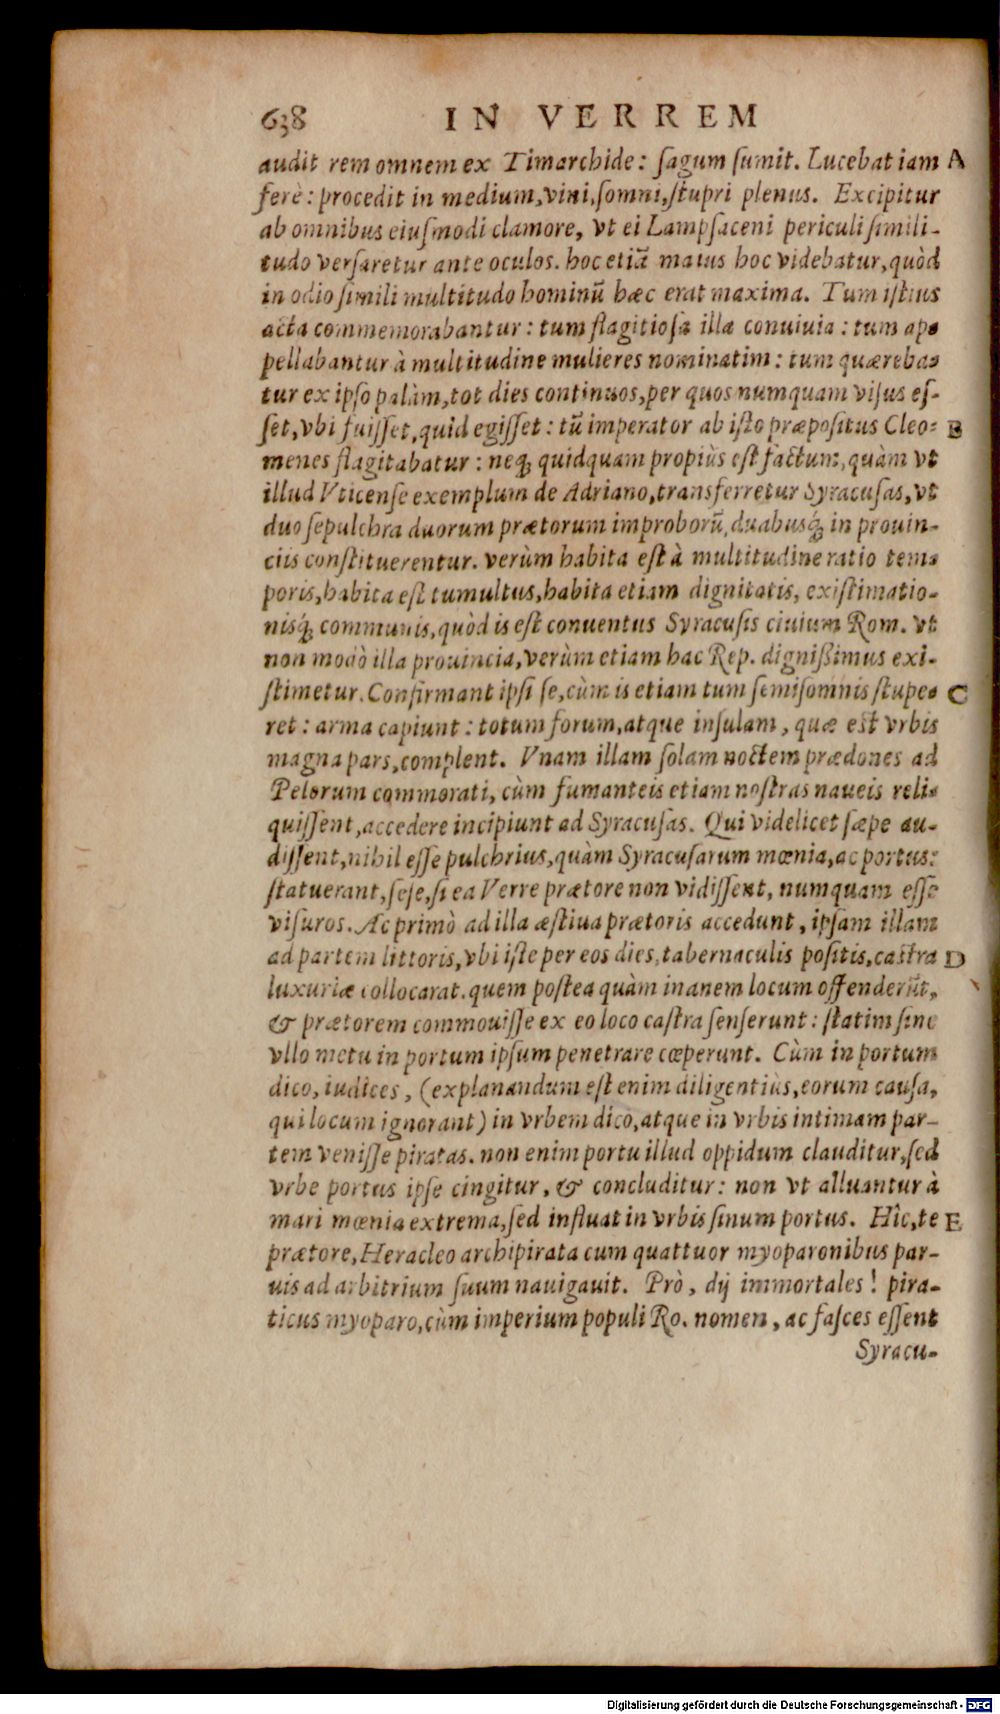 638 IN VERREM
audit rem omnem ex Timarchide: ſagum ſumit. Lucebat iam A
ferè: procedit in medium, vini, ſomni, ſtupri plenus. Excipitur
ab omnibus eiuſmodi clamore, vt ei Lampſaceni periculi ſimili-
tudo verſaretur ante oculos. hoc etiã maius hoc videbatur, quòd
in odio ſimili multitudo hominũ hæc erat maxima. Tum iſtius
acta commemorabantur: tum flagitioſa illa conuiuia: tum ap-
pellabantur à multitudine mulieres nominatim: tum quæreba-
tur ex ipſo palàm, tot dies continuos, per quos numquam viſus eſ-
ſet, vbi fuiſſet, quid egiſſet: tũ imperator ab iſto præpoſitus Cleo- B
menes flagitabatur: neq; quidquam propiùs eſt factum, quàm vt
illud Vticenſe exemplum de Adriano, transferretur Syracuſas, vt
duo ſepulchra duorum prætorum improborũ, duabusq́; in prouin-
ciis conſtituerentur. verùm habita eſt à multitudine ratio tem-
poris, habita eſt tumultus, habita etiam dignitatis, exiſtimatio-
nisq́; communis, quòd is eſt conuentus Syracuſis ciuium Rom. vt
non modò illa prouincia, verùm etiam hac Rep. digniſsimus exi-
ſtimetur. Confirmant ipſi ſe, cùm is etiam tum ſemiſomnis ſtupe- C
ret: arma capiunt: totum forum, atque inſulam, quæ eſt vrbis
magna pars, complent. Vnam illam ſolam noctem prædones ad
Pelorum commorati, cùm fumanteis etiam noſtras naueis reli-
quiſſent, accedere incipiunt ad Syracuſas. Qui videlicet ſæpe au-
diſſent, nihil eſſe pulchrius, quàm Syracuſarum mœnia, ac portus:
ſtatuerant, ſeſe, ſi ea Verre prætore non vidiſſent, numquam eſſe
viſuros. Ac primò ad illa æſtiua prætoris accedunt, ipſam illam
ad partem littoris, vbi iſte per eos dies, tabernaculis poſitis, caſtra D
luxuriæ collocarat. quem poſtea quàm inanem locum offenderũt,
& prætorem commouiſſe ex eo loco caſtra ſenſerunt: ſtatim ſine
vllo metu in portum ipſum penetrare cœperunt. Cùm in portum
dico, iudices, (explanandum eſt enim diligentiùs, eorum cauſa,
qui locum ignorant) in vrbem dico, atque in vrbis intimam par-
tem veniſſe piratas. non enim portu illud oppidum clauditur, ſed
vrbe portus ipſe cingitur, & concluditur: non vt alluantur à
mari mœnia extrema, ſed influat in vrbis ſinum portus. Hîc, te E
prætore, Heracleo archipirata cum quattuor myoparonibus par-
uis ad arbitrium ſuum nauigauit. Prò, dij immortales! pira-
ticus myoparo, cùm imperium populi Ro. nomen, ac faſces eſſent
Syracu-
Digitalisierung gefördert durch die Deutsche Forschungsgemeinschaft - DFG